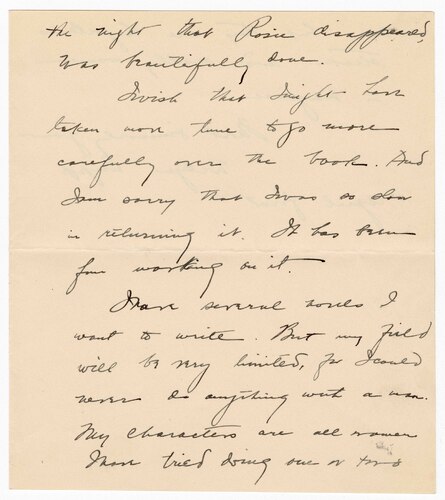 the night that Rosie disappeared,
was beautifully done.
I wish that I might have
taken more time to go more
carefully over the book. And
I am sorry that I was so slow
in returning it. It has been
fun working on it.
I have several novels I
want to write. But my field
will be very limited, for I could
never do anything with a man.
My characters are all women
I have tried doing one or two